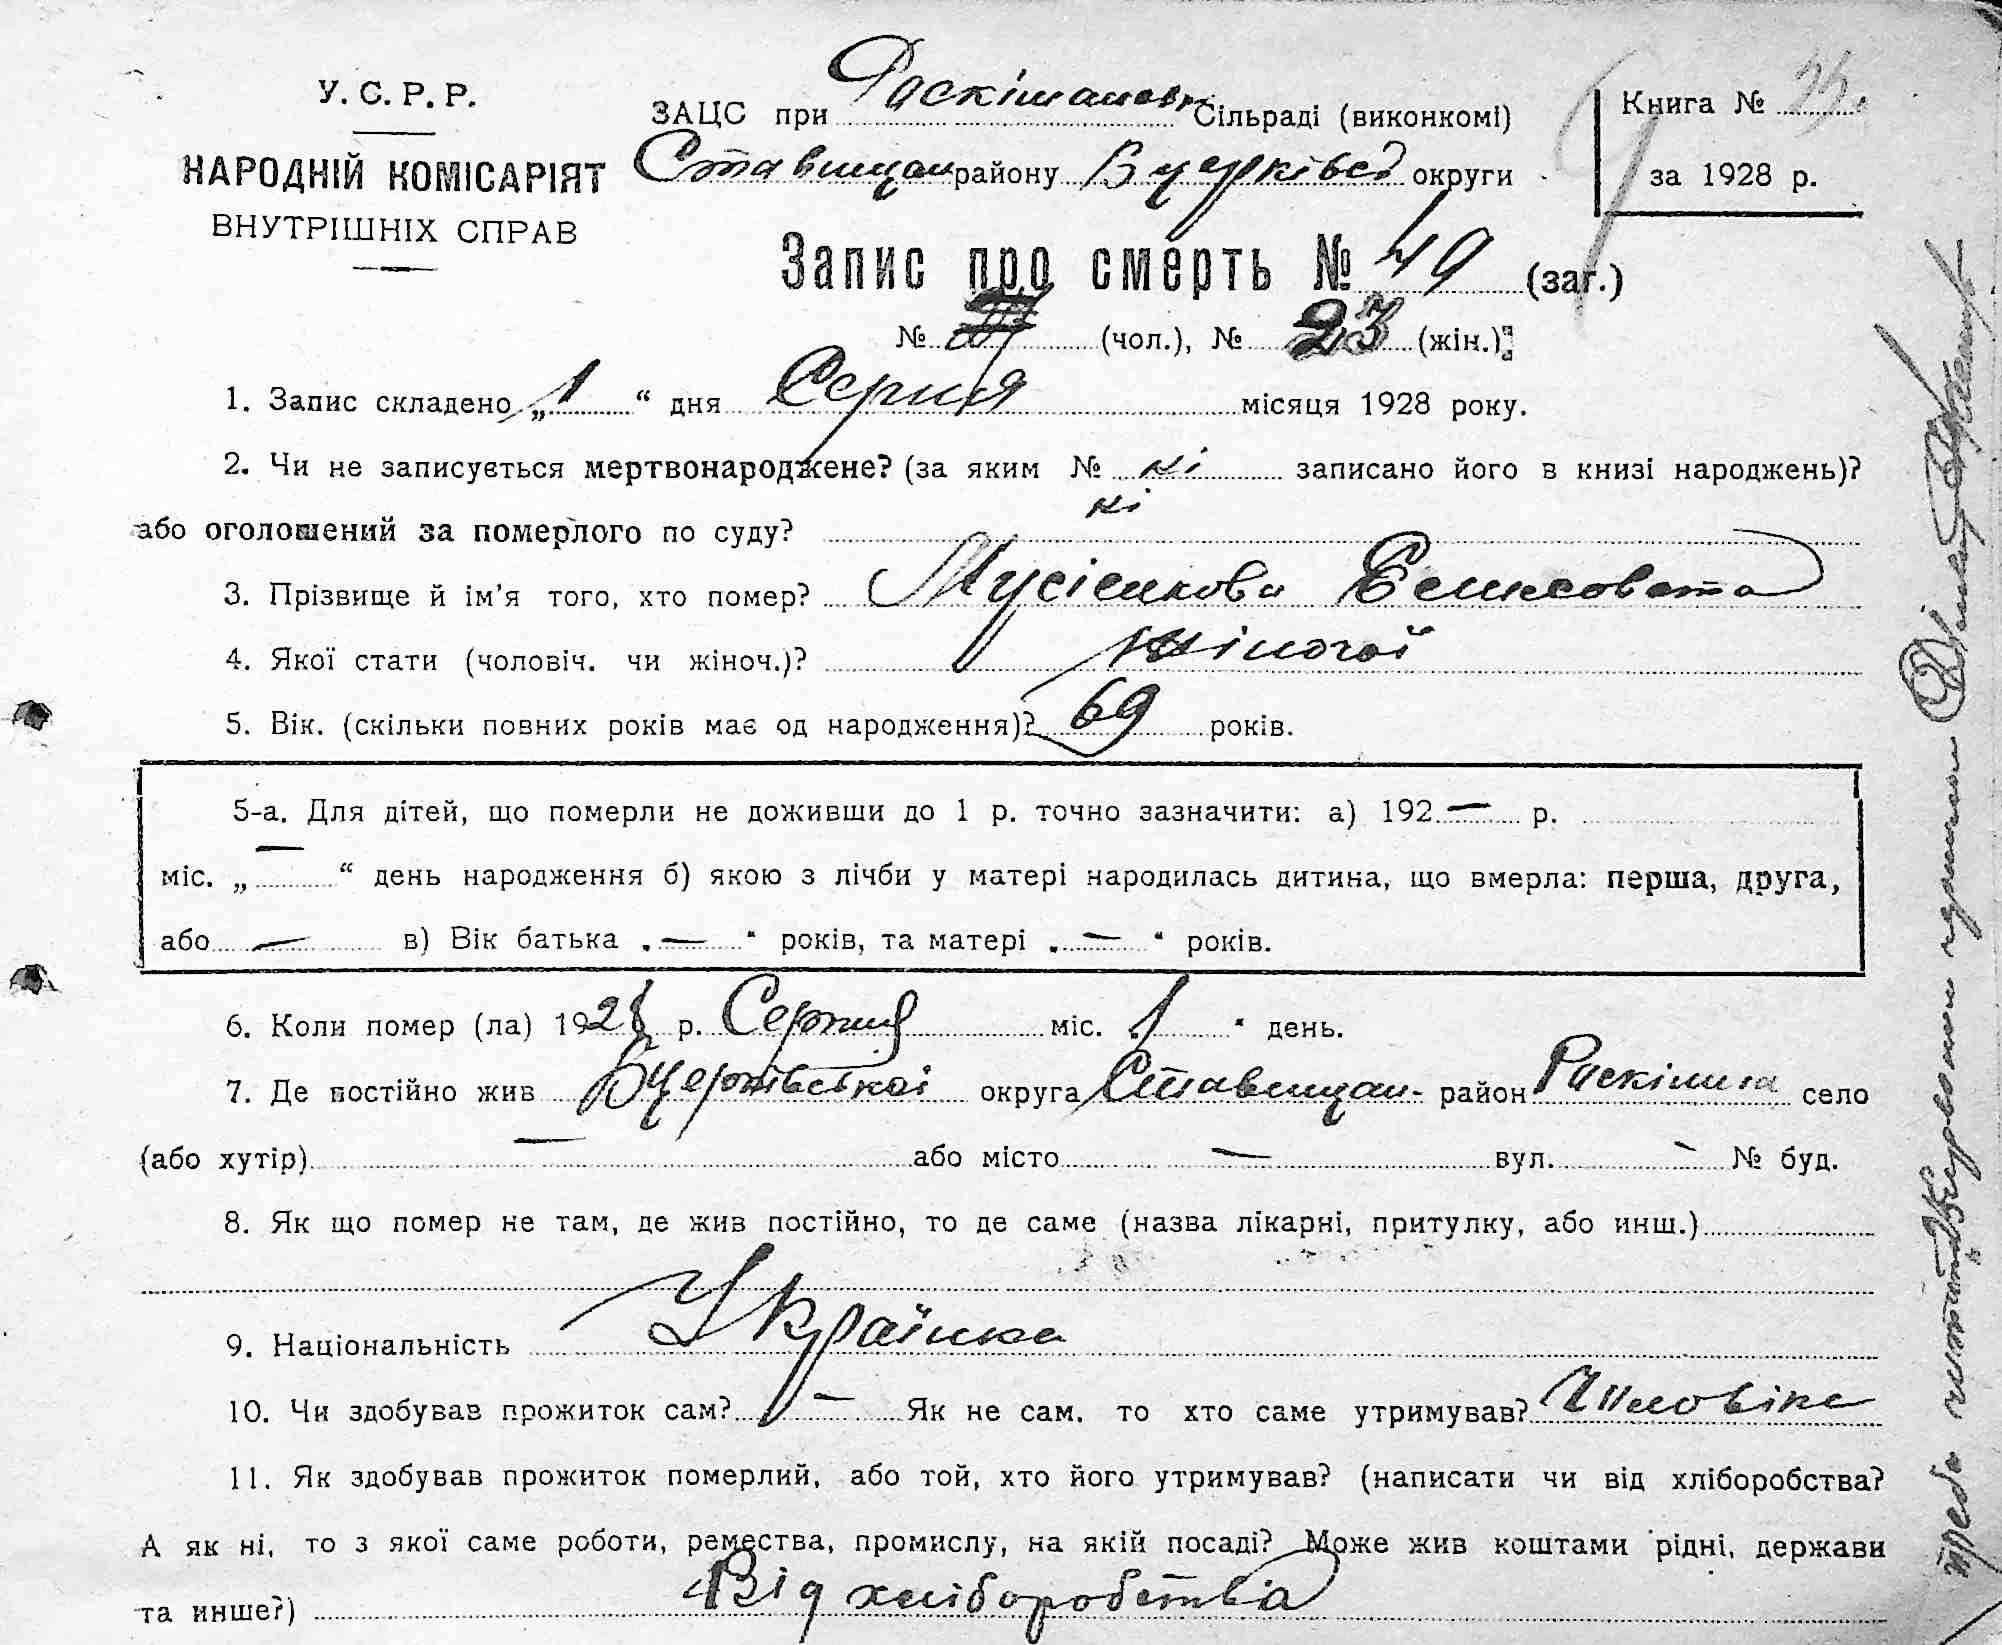 У. С. Р. Р.
НАРОДНІЙ КОМІСАРІЯТ
ВНУТРІШНІХ СПРАВ
ЗАЦС при Раскішанськ Сільраді (виконкомі)
Ставищан району Бцерківсь округи
Книга №
за 1928 р.
Запис про смерть № 49 (заг.)
№ (чол.), № 23 (жін.)
1. Запис складено „ 1 “ дня Серпня місяця 1928 року.
2. Чи не записується мертвонароджене? (за яким № ні записано його в книзі народжень)?
або оголошений за померлого по суду? ні
3. Прізвище й ім’я того, хто помер? Мусієнкова Єлисовета
4. Якої стати (чоловіч. чи жіноч.)? жіночої
5. Вік. (скільки повних років має од народження)? 69 років.
5-а. Для дітей, що померли не доживши до 1 р. точно зазначити: а) 192 — р.
міс. „ — “ день народження б) якою з лічби у матері народилась дитина, що вмерла: перша, друга,
або — в) Вік батька „ — “ років, та матері „ — “ років.
6. Коли помер (ла) 1928 р. Серпня міс. 1 “ день.
7. Де постійно жив Бцерківської округа Ставищан- район Раскішна село
(або хутір) — або місто — вул. — № буд.
8. Як що помер не там, де жив постійно, то де саме (назва лікарні, притулку, або инш.)
9. Національність Українка
10. Чи здобував прожиток сам? — Як не сам, то хто саме утримував? Чиловік
11. Як здобував прожиток померлий, або той, хто його утримував? (написати чи від хліборобства?
А як ні, то з якої саме роботи, ремества, промислу, на якій посаді? Може жив коштами рідні, держави
та инше?) Від хліборобства
треба читати